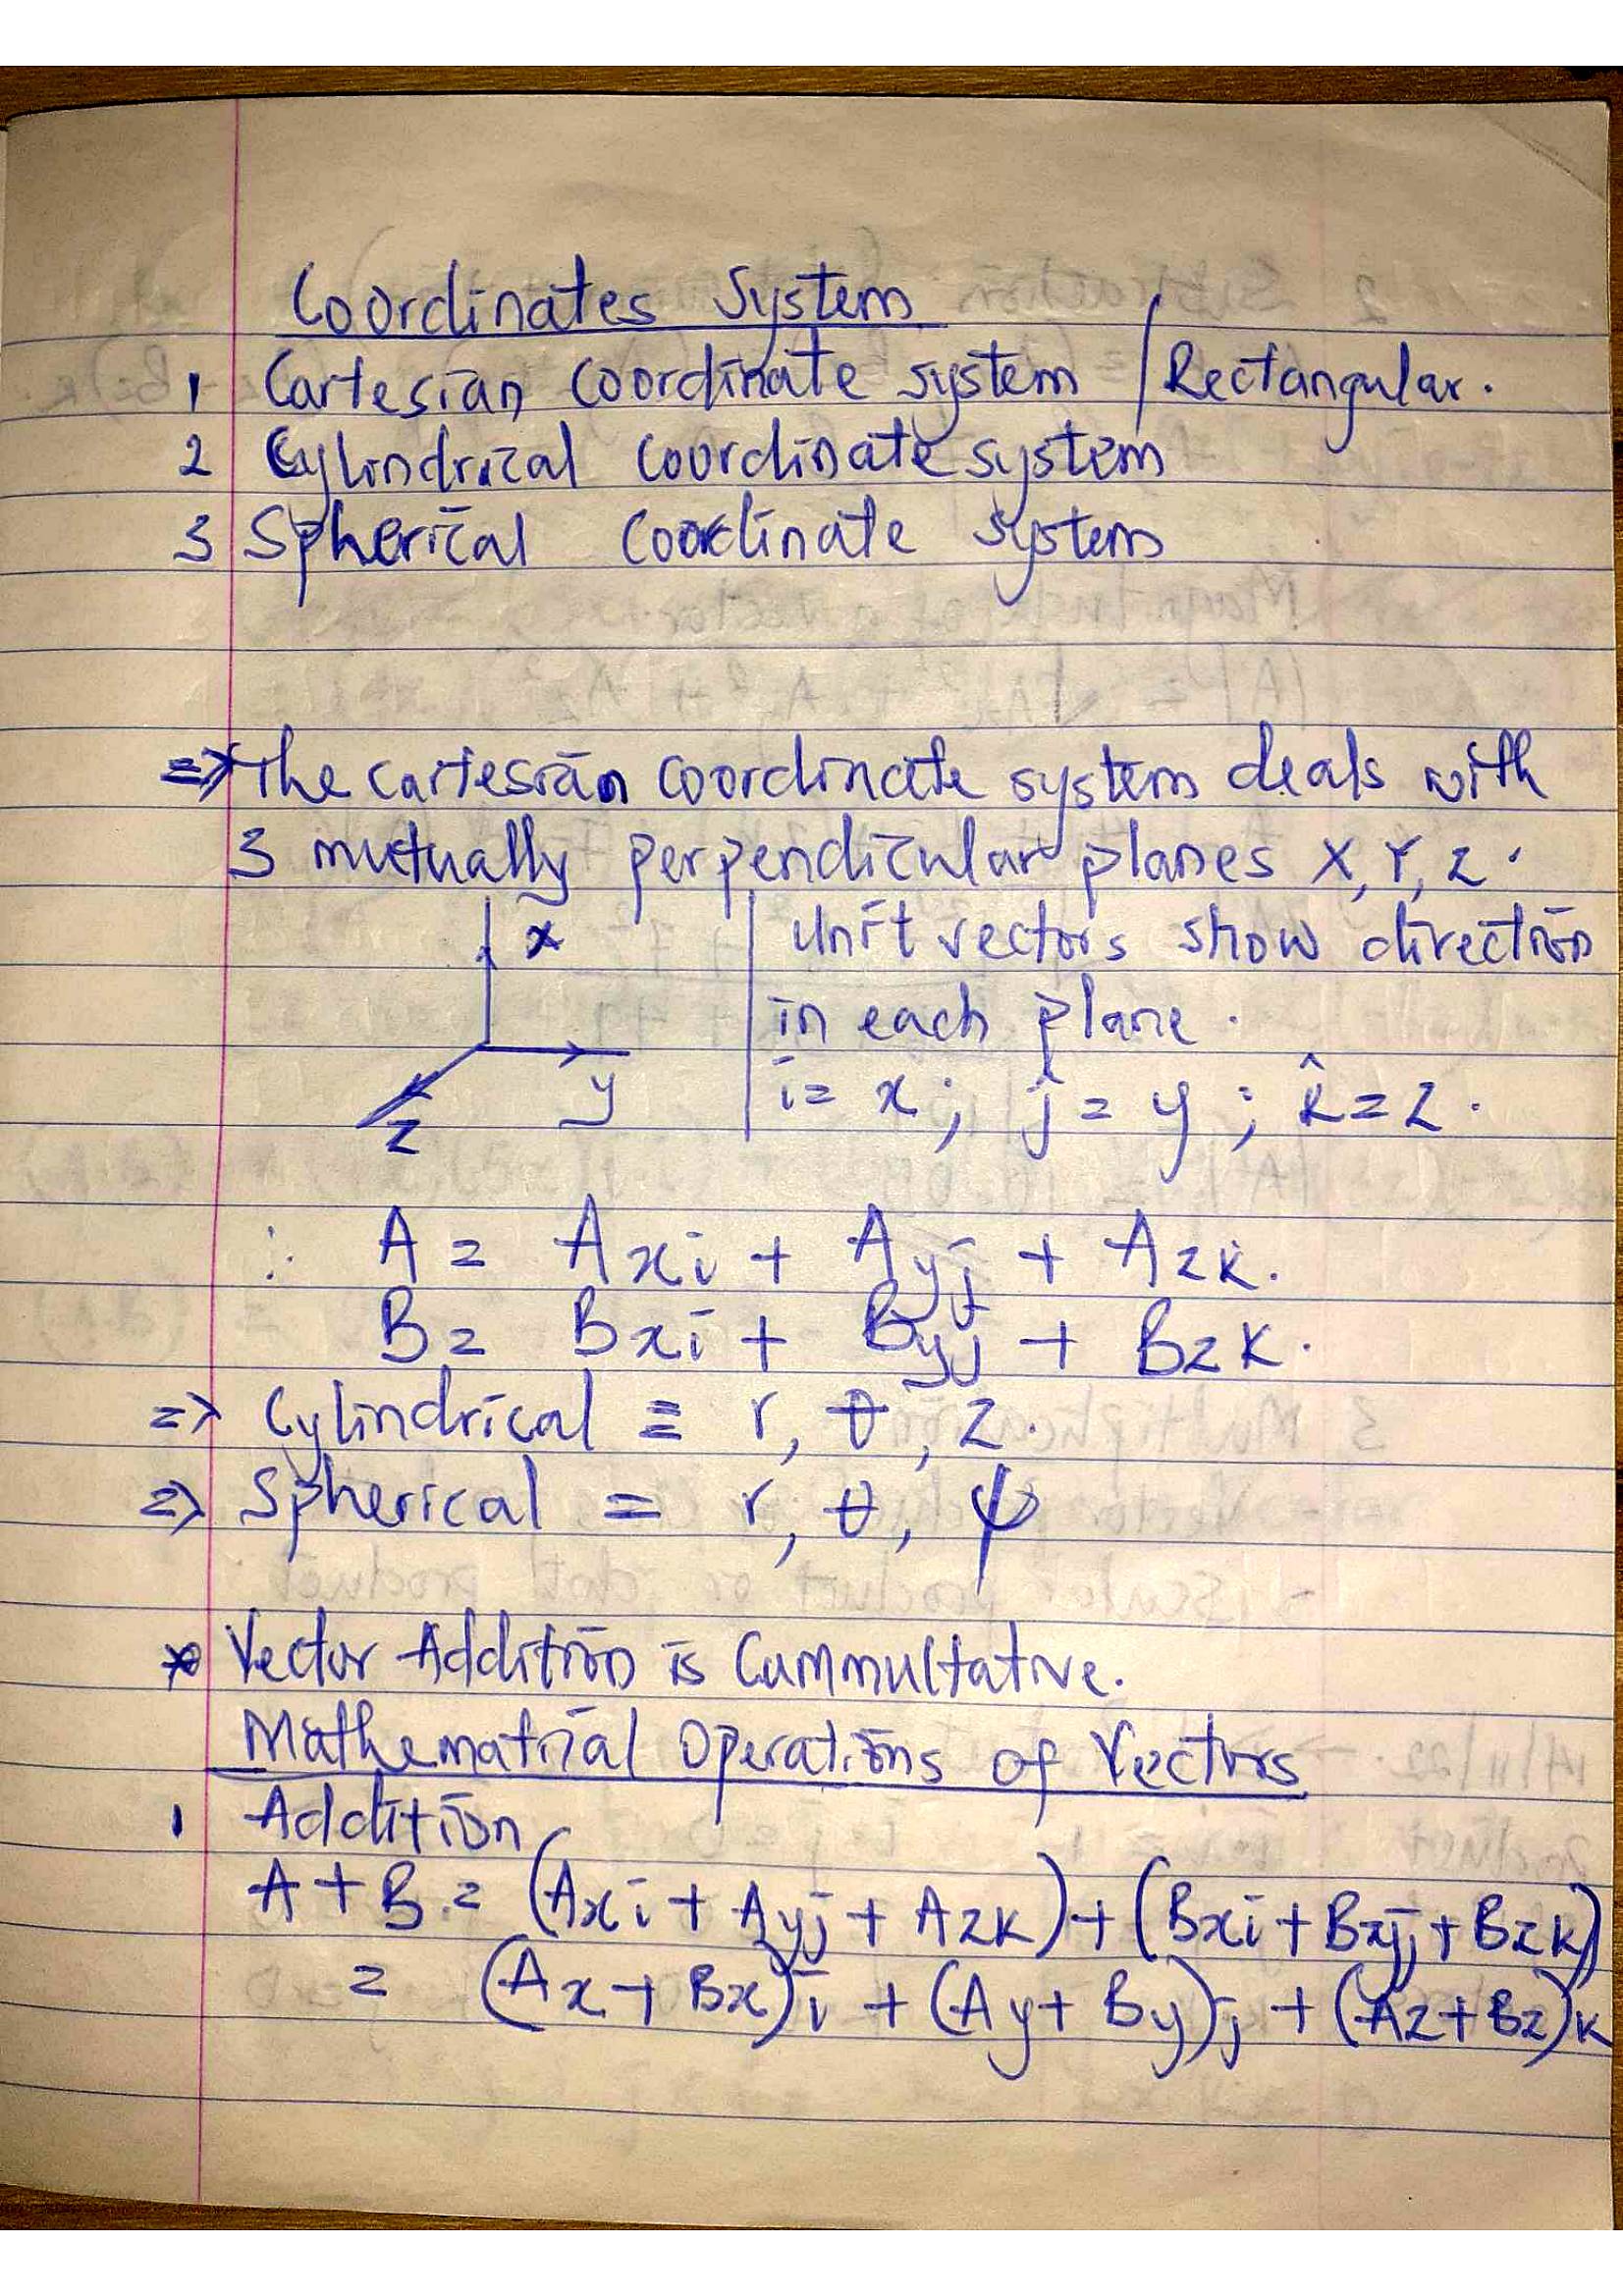 Coordinates System
1 Cartesian Coordinate system / Rectangular.
2 Cylindrical Coordinate system
3 Spherical Coordinate system
=> The cartesian coordinate system deals with
3 mutually perpendicular planes X, Y, Z.
x
y
z
Unit vectors show direction
in each plane.
i = x; ĵ = y; k̂ = z.
∴ A = Axi + Ayj + Azk.
B = Bxi + Byj + Bzk.
=> Cylindrical ≡ r, θ, z.
=> Spherical = r, θ, ψ
* Vector Addition is Cummultative.
Mathematical Operations of Vectors
1 Addition
A + B = (Axi + Ayj + Azk) + (Bxi + Bxj + Bzk)
= (Ax + Bx)i + (Ay + By)j + (Az + Bz)k